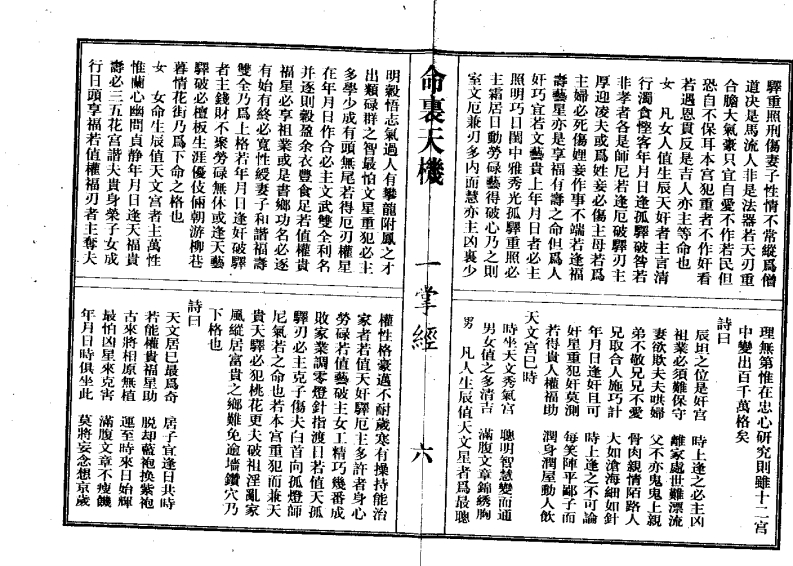 驛重照刑傷妻子性情不常縱爲僧
道決是馬流人非是法器若天刃重
合膽大氣豪只宜自愛不作若民但
恐自不保耳本宮犯重者不作奸看
若遇恩貫反是吉人亦主等命也
女 凡女人值生辰天奸者主言清
行濁食慳客年月日逢孤驛破咎若
非孝者各是師尼若逢厄破驛刃主
厚迎凌夫或爲姓妾必傷主母若爲
主婦必死傷姪妾作事不端若逢福
壽藝星亦是享福有壽之命但爲人
奸巧宜若文藝貴上年月日者必主
照明巧日閨中雅秀光孤驛重照必
主霜居日動勞碌藝得破心乃之則
室文厄兼刃多內而慧亦主凶裏少
理無第惟在忠心研究則雖十二宮
中變出百千萬格矣
詩曰
辰坦之位是奸宮 時上逢之必主凶
祖業必須難保守 離家處世難漂流
妻欲欺夫夫哄婦 父不亦鬼鬼上親
弟不敬兄兄不愛 骨肉親情陌路人
兄取合人施巧計 大如滄海細如針
年月日逢奸且可 時上逢之不可論
奸星重犯奸莫測 每笑陣平鄙子而
若得貴人權福助 潤身潤屋動人飲
天文宮巳時
時坐天文秀氣宮 聰明智慧變而通
男女值之多清吉 滿腹文章錦綉胸
男 凡人生辰值天文星者爲最聰
命裏天機 一掌經 六
明穀悟志氣過人有攀龍附鳳之才
出類碌群之智最怕文星重犯必主
多學少成有頭無尾若得厄刃權星
在年月日作合必主文武雙全利名
并逐則穀盈余衣豊食足若值權貴
福星必享祖業或是書鄉功名必逐
有始有終必寬性綬妻子和諧福壽
雙全乃爲上格若年月日逢奸破驛
者主錢財不聚勞碌無休或逢天藝
驛破必檀板生涯優伎倆朝游柳巷
暮情花街乃爲下命之格也
女 女命生辰值天文宮者主萬性
惟蘭心幽問貞靜年月日逢天福貴
壽必三五花宮諧夫貴身榮子女成
行日頭享福若值權福刃者主奪夫
權性格豪邁不耐歲寒有操持能治
家者若值天奸驛厄主多許者身心
勞碌若值藝破主女工精巧幾番成
敗家業調零燈針指渡日若值天孤
驛刃必主克子傷夫白首向孤燈師
尼氣若之命也若本宮重犯而兼天
貴天驛必犯桃花更夫破祖淫亂家
風縱居富貴之鄉難免逾墻鑽穴乃
下格也
詩曰
天文居巳最爲奇 居子宜逢日共時
若能權貴福星助 脫却藍袍換紫袍
古來將相原無植 運至時來日始輝
最怕凶星來克害 滿腹文章不瘦饑
年月日時俱坐此 莫將妄念想京歲